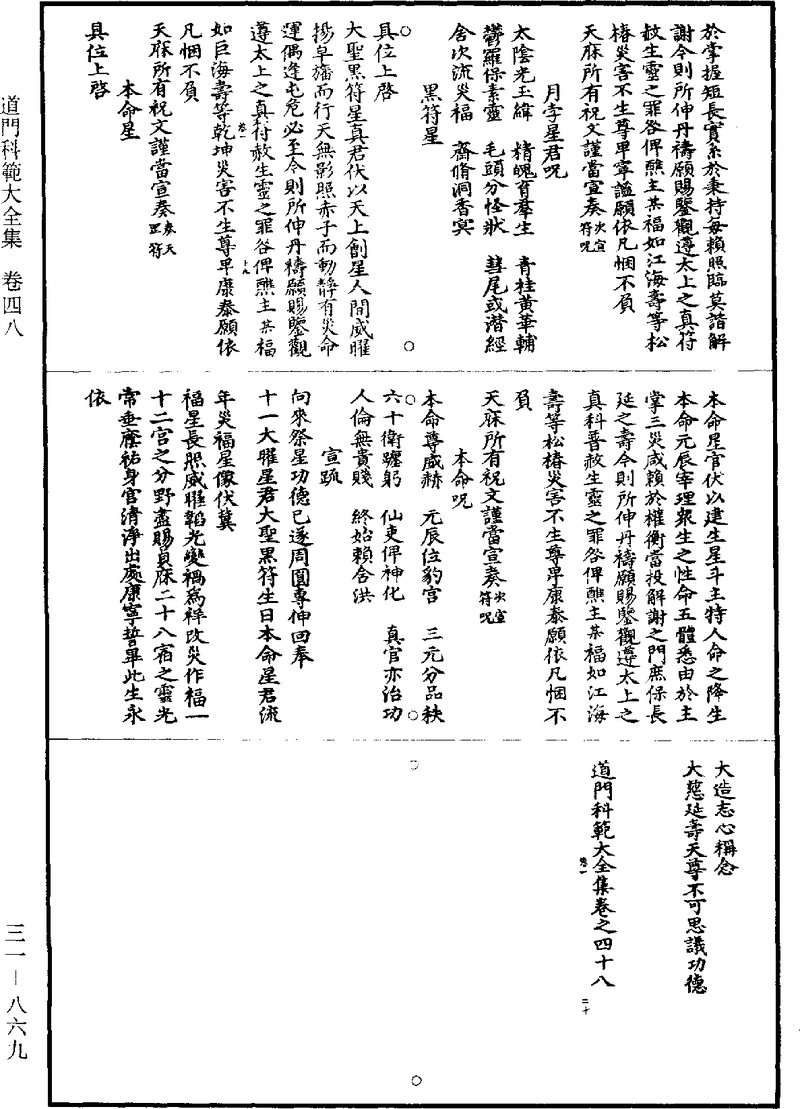 於掌握短長實系於秉持每賴照臨莫諧解
謝今則所伸丹禱願賜鑒觀遵太上之真符
赦生靈之罪咎俾醮主某福如江海壽等松
椿災害不生尊卑寧謐願依凡悃不負
天庥所有祝文謹當宣奏次宣符呪
月孛星君呪
太陰光玉緯　精魄育羣生　青桂黃華輔
鬱羅保素靈　毛頭分怪狀　彗尾或潛經
舍次流災福　齋脩洞香冥
黑符星
具位上啓
大聖黑符星真君伏以天上創星人間威曜
揚皁旛而行天無影照赤子而動靜有災命
運偶逢屯危必至今則所伸丹禱願賜鑒觀
遵太上之真符赦生靈之罪咎俾醮主某福
如巨海壽等乾坤災害不生尊卑康泰願依
凡悃不負
天庥所有祝文謹當宣奏
本命星
具位上啓
本命星官伏以建生星斗主持人命之降生
本命元辰宰理衆生之性命五體悉由於主
掌三災咸賴於權衡當投解謝之門庶保長
延之壽今則所伸丹禱願賜鑒觀遵太上之
真科普赦生靈之罪咎俾醮主某福如江海
壽等松椿災害不生尊卑康泰願依凡悃不
負
天庥所有祝文謹當宣奏次宣符呪
本命呪
本命尊威赫　元辰位豹宮　三元分品秩
六十衛躔躬　仙吏俾神化　真官亦治功
人倫無貴賤　終始賴含洪
宣疏
向來祭星功德已遂周圓專伸回奉
十一大曜星君大聖黑符生日本命星君流
年災福星像伏冀
福星長照威曜韜光變禍爲祥改災作福一
十二宮之分野盡賜貞庥二十八宿之靈光
常垂廕祐身宮清淨出處康寧誓畢此生永
依
大造志心稱念
大慈延壽天尊不可思議功德
道門科範大全集卷之四十八
道門科範大全集　卷四八
三一—八六九